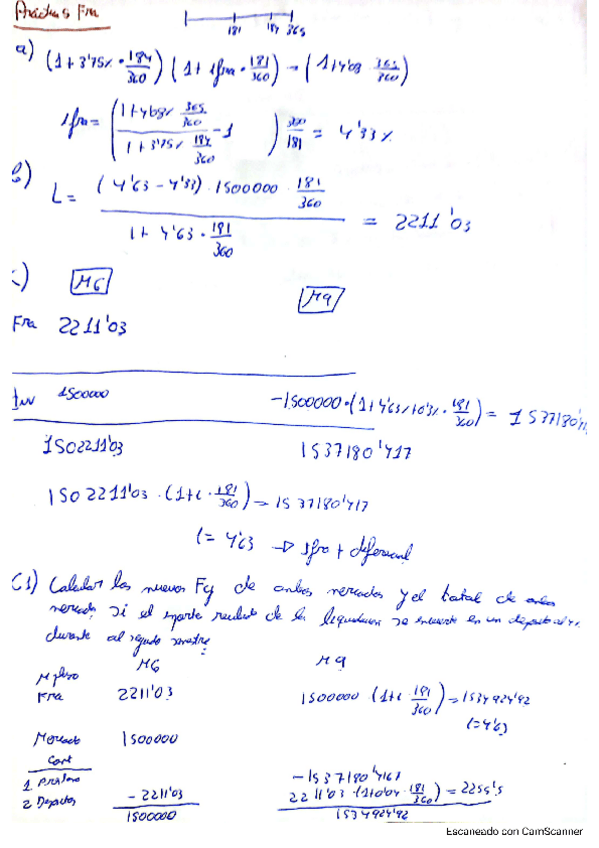 Prácticas Fra
181 184 365
a) (1+3'75% · 184/360) (1+ifra · 181/360) = (1+4'08 365/360)
ifra = ( 1+4'08% 365/360 / 1+3'75% 184/360 - 1 ) 360/181 = 4'33%
b) L = (4'63 - 4'33) · 1500000 · 181/360 / 1 + 4'63 · 181/360 = 2211'03
M6
Fra 2211'03
Inv 1500000 -1500000·(1+4'63%+0'3% · 181/360) = 1537180
1502211'03 1537180'417
1502211'03 · (1+i · 181/360) = 1537180'417
i = 4'63 → ifra + diferencial
C1) Calcular los nuevos de ambos mercados y el total de ambos
mercados si el importe recibido de la liquidacion se invierte en un deposito al 4%
durante al segundo semestre
M6
Fra 2211'03 1500000 (1+i 181/360) = 1534924'92
i=4'63
Mercado 1500000
Cont
1 Préstamo -1537180'4167
2 Deposito -2211'03 2211'03·(1+0'04 · 181/360) = 2255'5
1500000 1534924'92
Escaneado con CamScanner